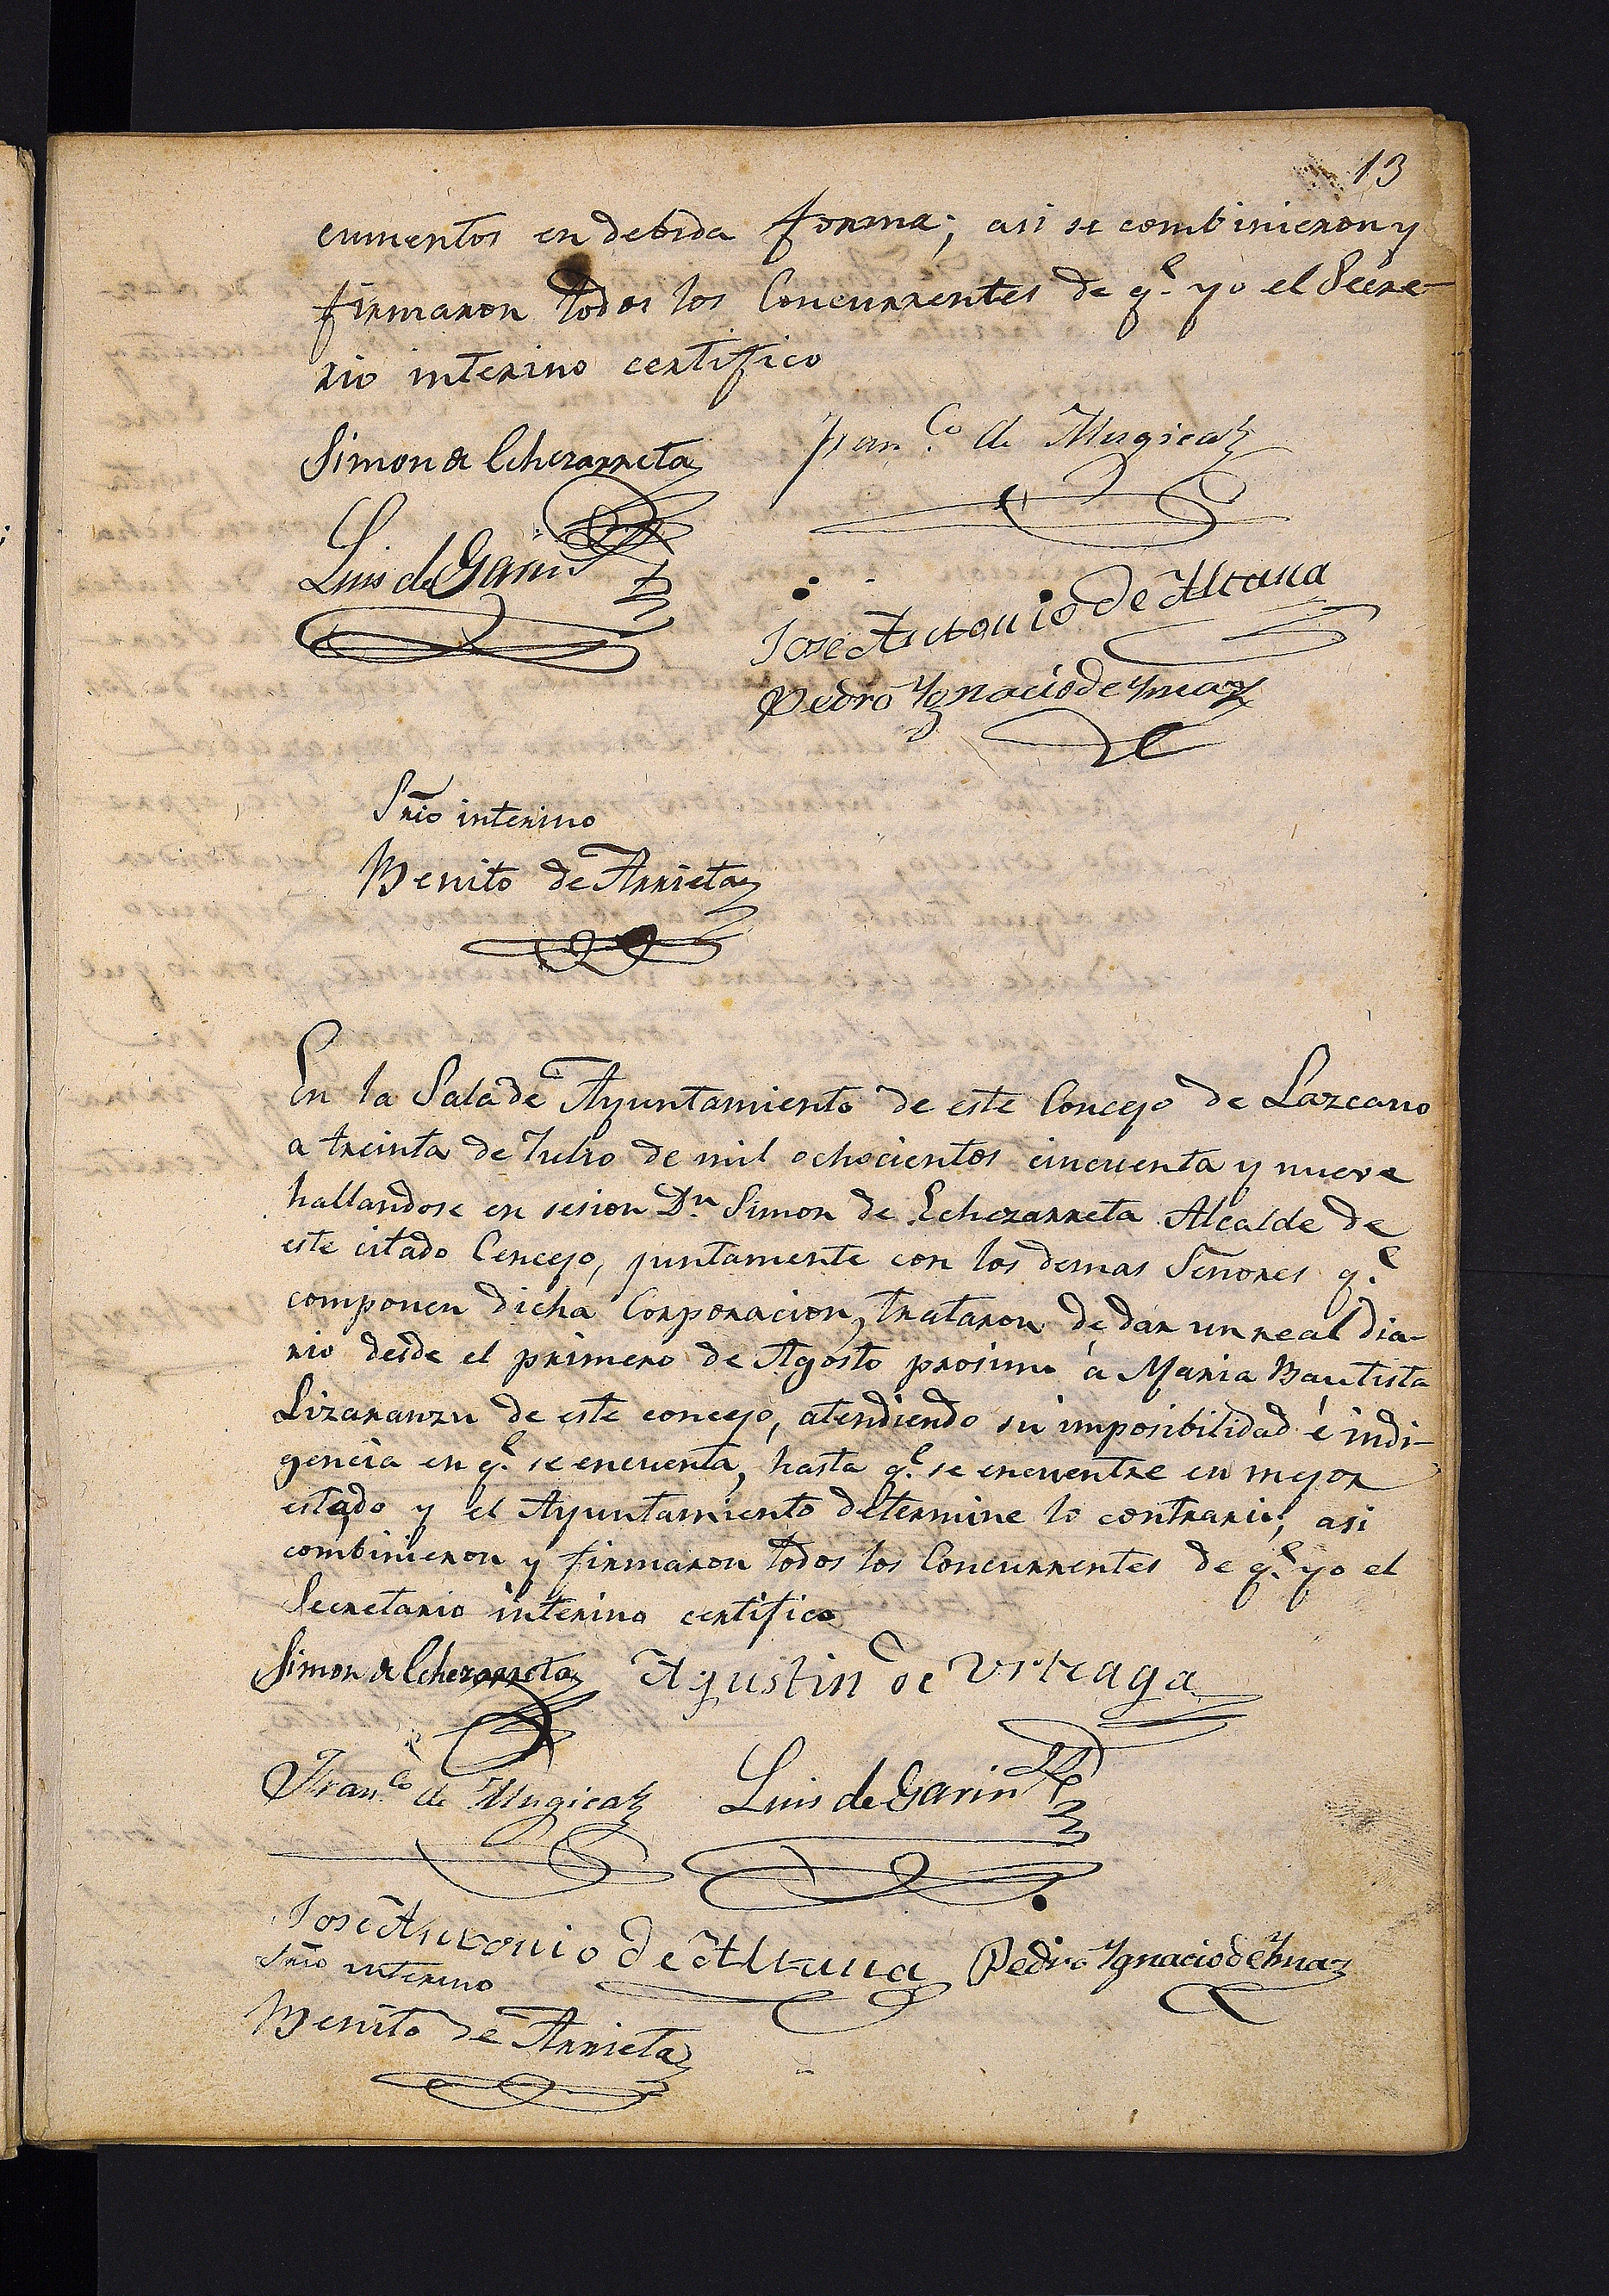 13
cumentos en debida forma; asi se combinieron y
firmaron todos los Concurrentes de q.e yo el Secre-
rio interino certifico
Simon de Echezarreta
Fran.co de Mugica
Luis de Garin
José Antonio de Altuna
Pedro Ygnacio de Ymaz
Srio interino
Benito de Arrieta
En la Sala de Ayuntamiento de este Concejo de Lazcano
a treinta de Julio de mil ochocientos cincuenta y nueve
hallandose en sesion D.n Simon de Echezarreta Alcalde de
este citado Concejo, juntamente con los demas Señores q.e
componen dicha Corporacion, trataron de dar un real dia-
rio desde el primero de Agosto prosimo á Maria Bautista
Lizaranzu de este concejo, atendiendo su imposibilidad é indi-
gencia en q.e se encuenta, hasta q.e se encuentre en mejor
estado y el Ayuntamiento determine lo contrario; asi
combinieron y firmaron todos los Concurrentes de q.e yo el
Secretario interino certifico
Simon de Echezarreta Agustin de Urteaga
Fran.co de Mugica Luis de Garin
José Antonio de Altuna Pedro Ygnacio de Ymaz
Srio interino
Benito de Arrieta